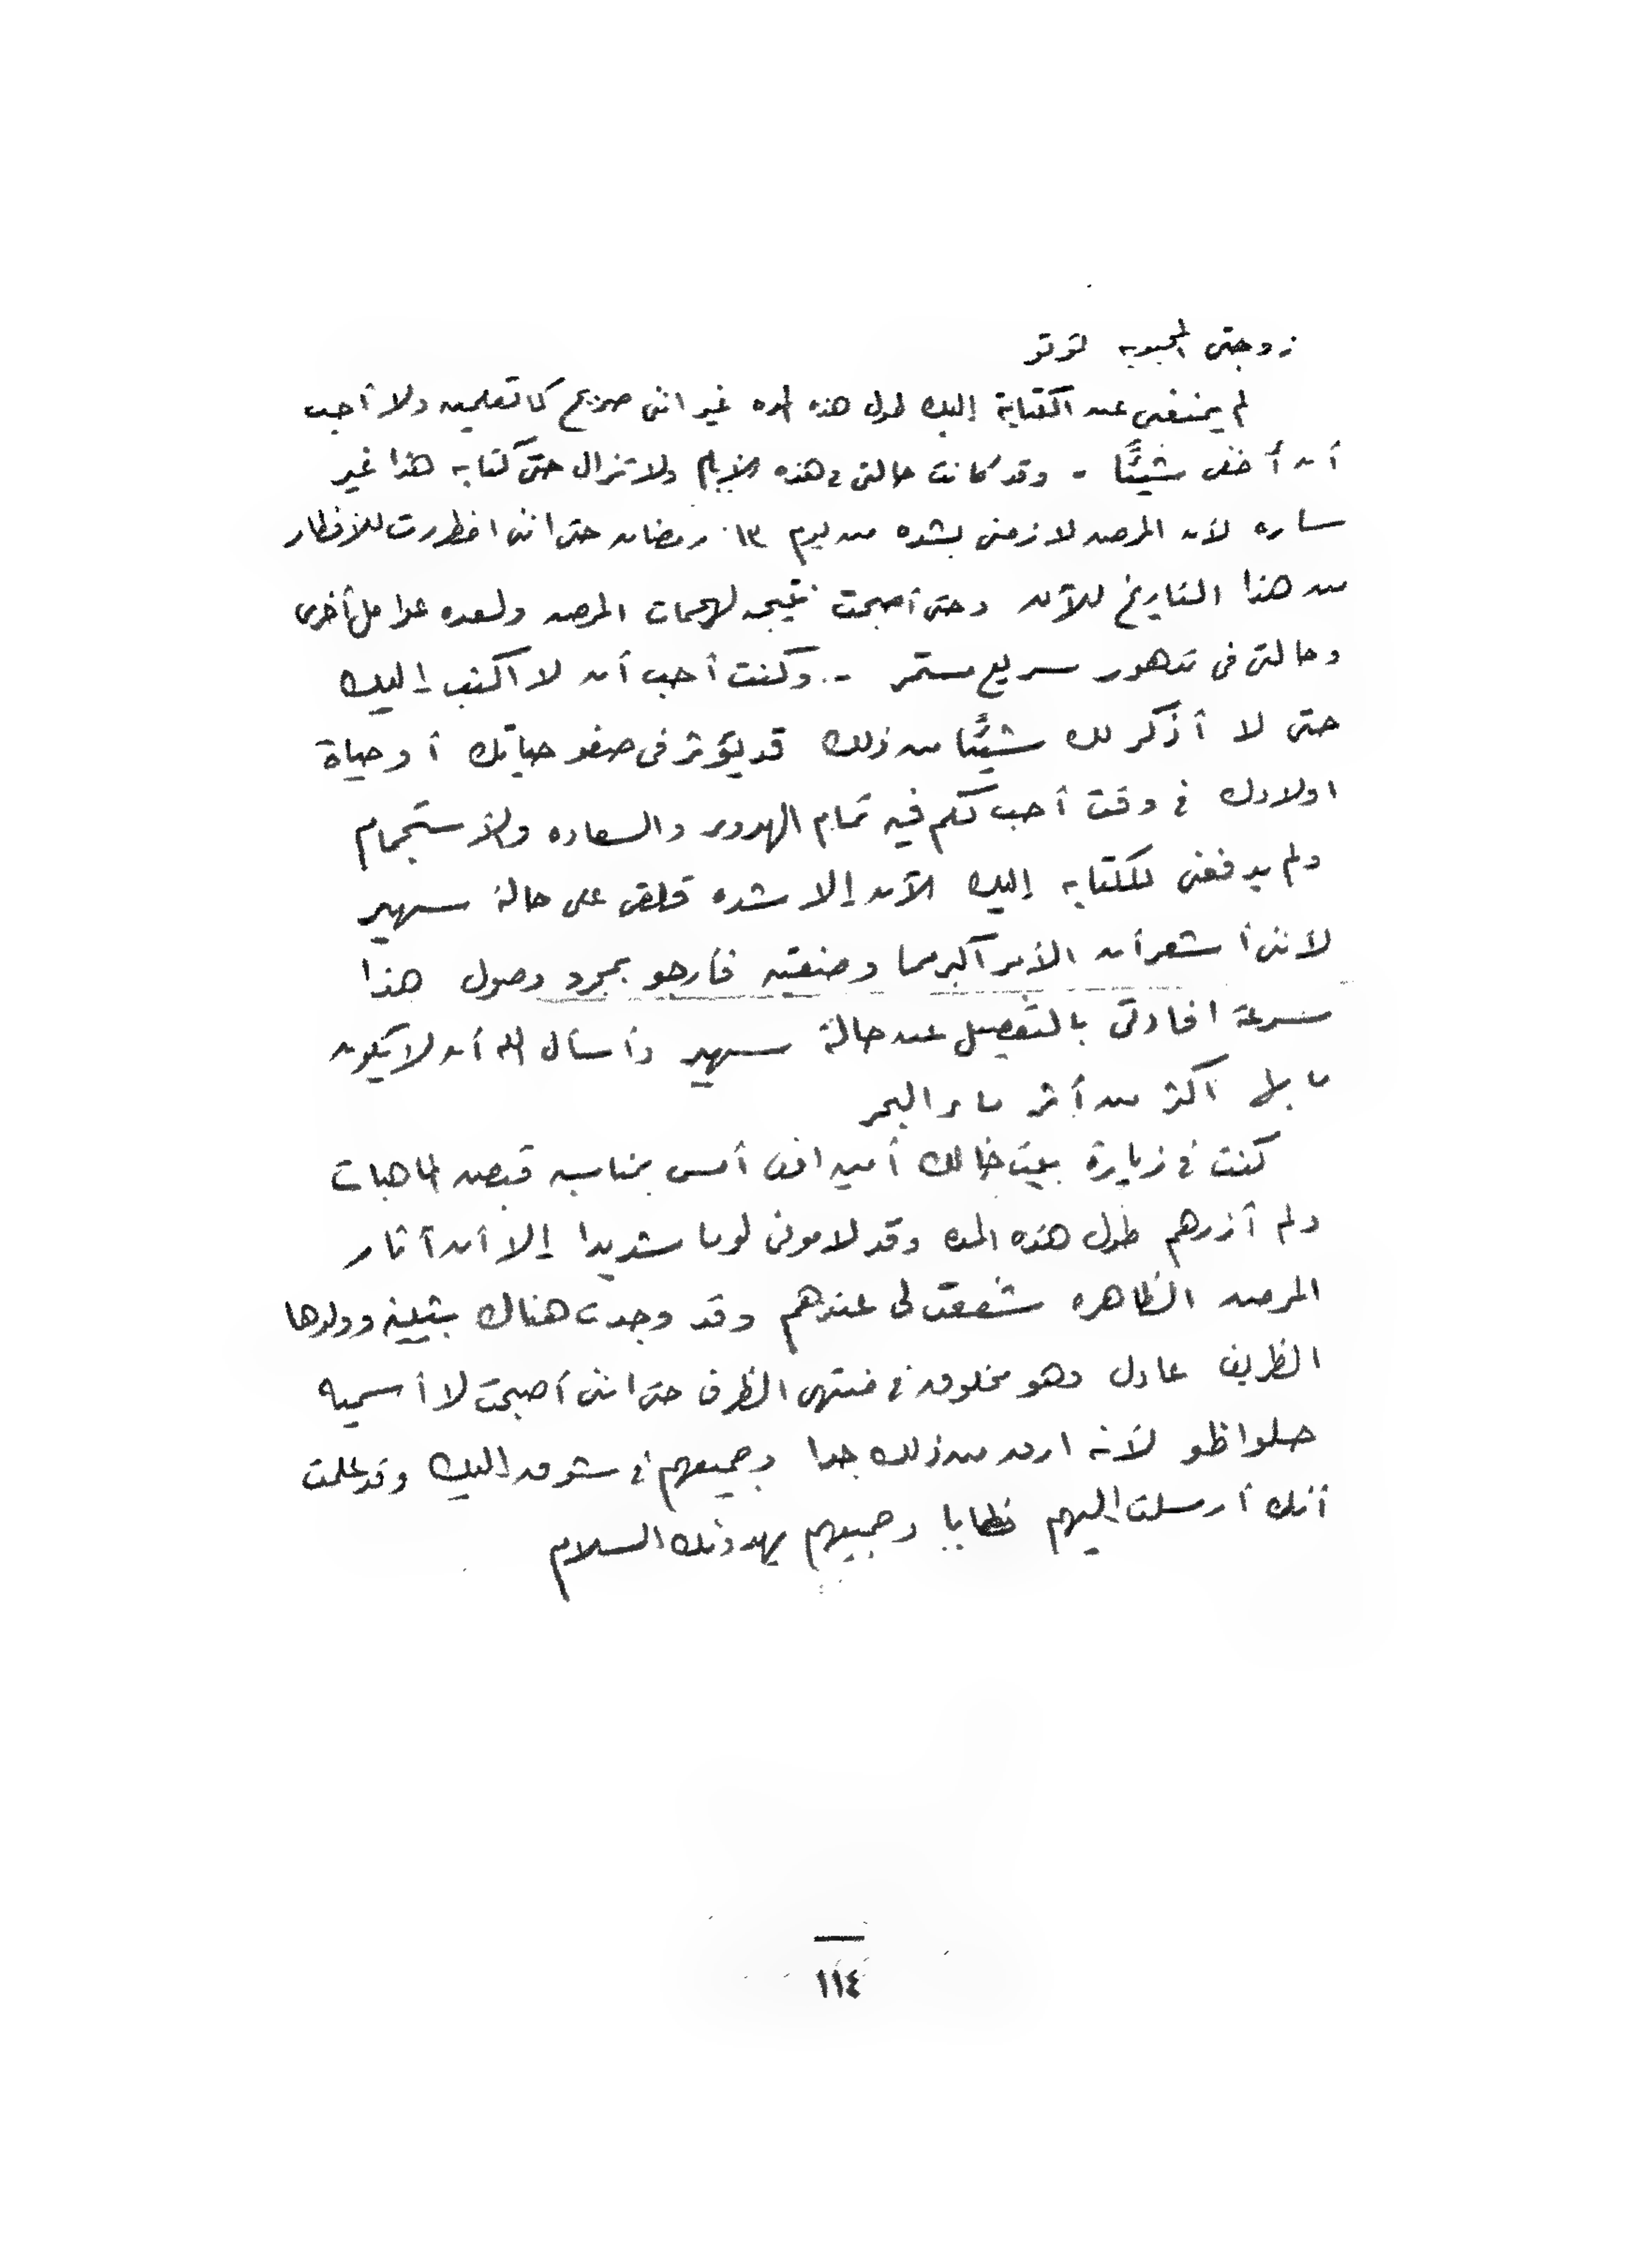 زوجتى المحبوبه توتو
لم يمنعنى عن الكتابة إليك طول هذه المده غير اننى صريح كما تعلمين ولا أحب
أن أخفى شيئًا - وقد كانت حالتى فى هذه الأيام ولا تزال حتى كتابه هذا غير
ساره لأن المرض لازمنى بشده من يوم ١٣ رمضان حتى اننى اضطررت للافطار
من هذا التاريخ للآن وحتى أصبحت نتيجه لهجمات المرض ولعده عوامل أخرى
وحالتى فى تدهور سريع مستمر - وكنت أحب أن لا اكتب إليك
حتى لا أذكر لك شيئًا من ذلك قد يؤثر فى صفو حياتك أو حياة
اولادك فى وقت أحب لكم فيه تمام الهدوء والسعاده والأستجمام
ولم يدفعنى للكتابه إليك الآن إلا شده قلقى على حالة سهير
لأننى أشعر أن الأمر أكبر مما وصفتيه فأرجو بمجرد وصول هذا
سرعة افادتى بالتفصيل عن حالة سهير وأسأل الله أن لا يكون
ما بها أكثر من أثر ماء البحر
كنت فى زيارة بيت خالك أمين أمس بمناسبه قبض الماهيات
ولم أزرهم طول هذه المده وقد لامونى لوما شديدا إلا أن آثار
المرض الظاهره شفعت لى عندهم وقد وجدت هناك بثينه وولدها
الظريف عادل وهو مخلوق فى منتهى الظرف حتى اننى أصبحت لا أسميه
حلواظو لأنه ارق من ذلك جدا وجميعهم فى شوق إليك وقد علمت
أنك أرسلت إليهم خطابا وجميعهم يهدونك السلام
١١٤